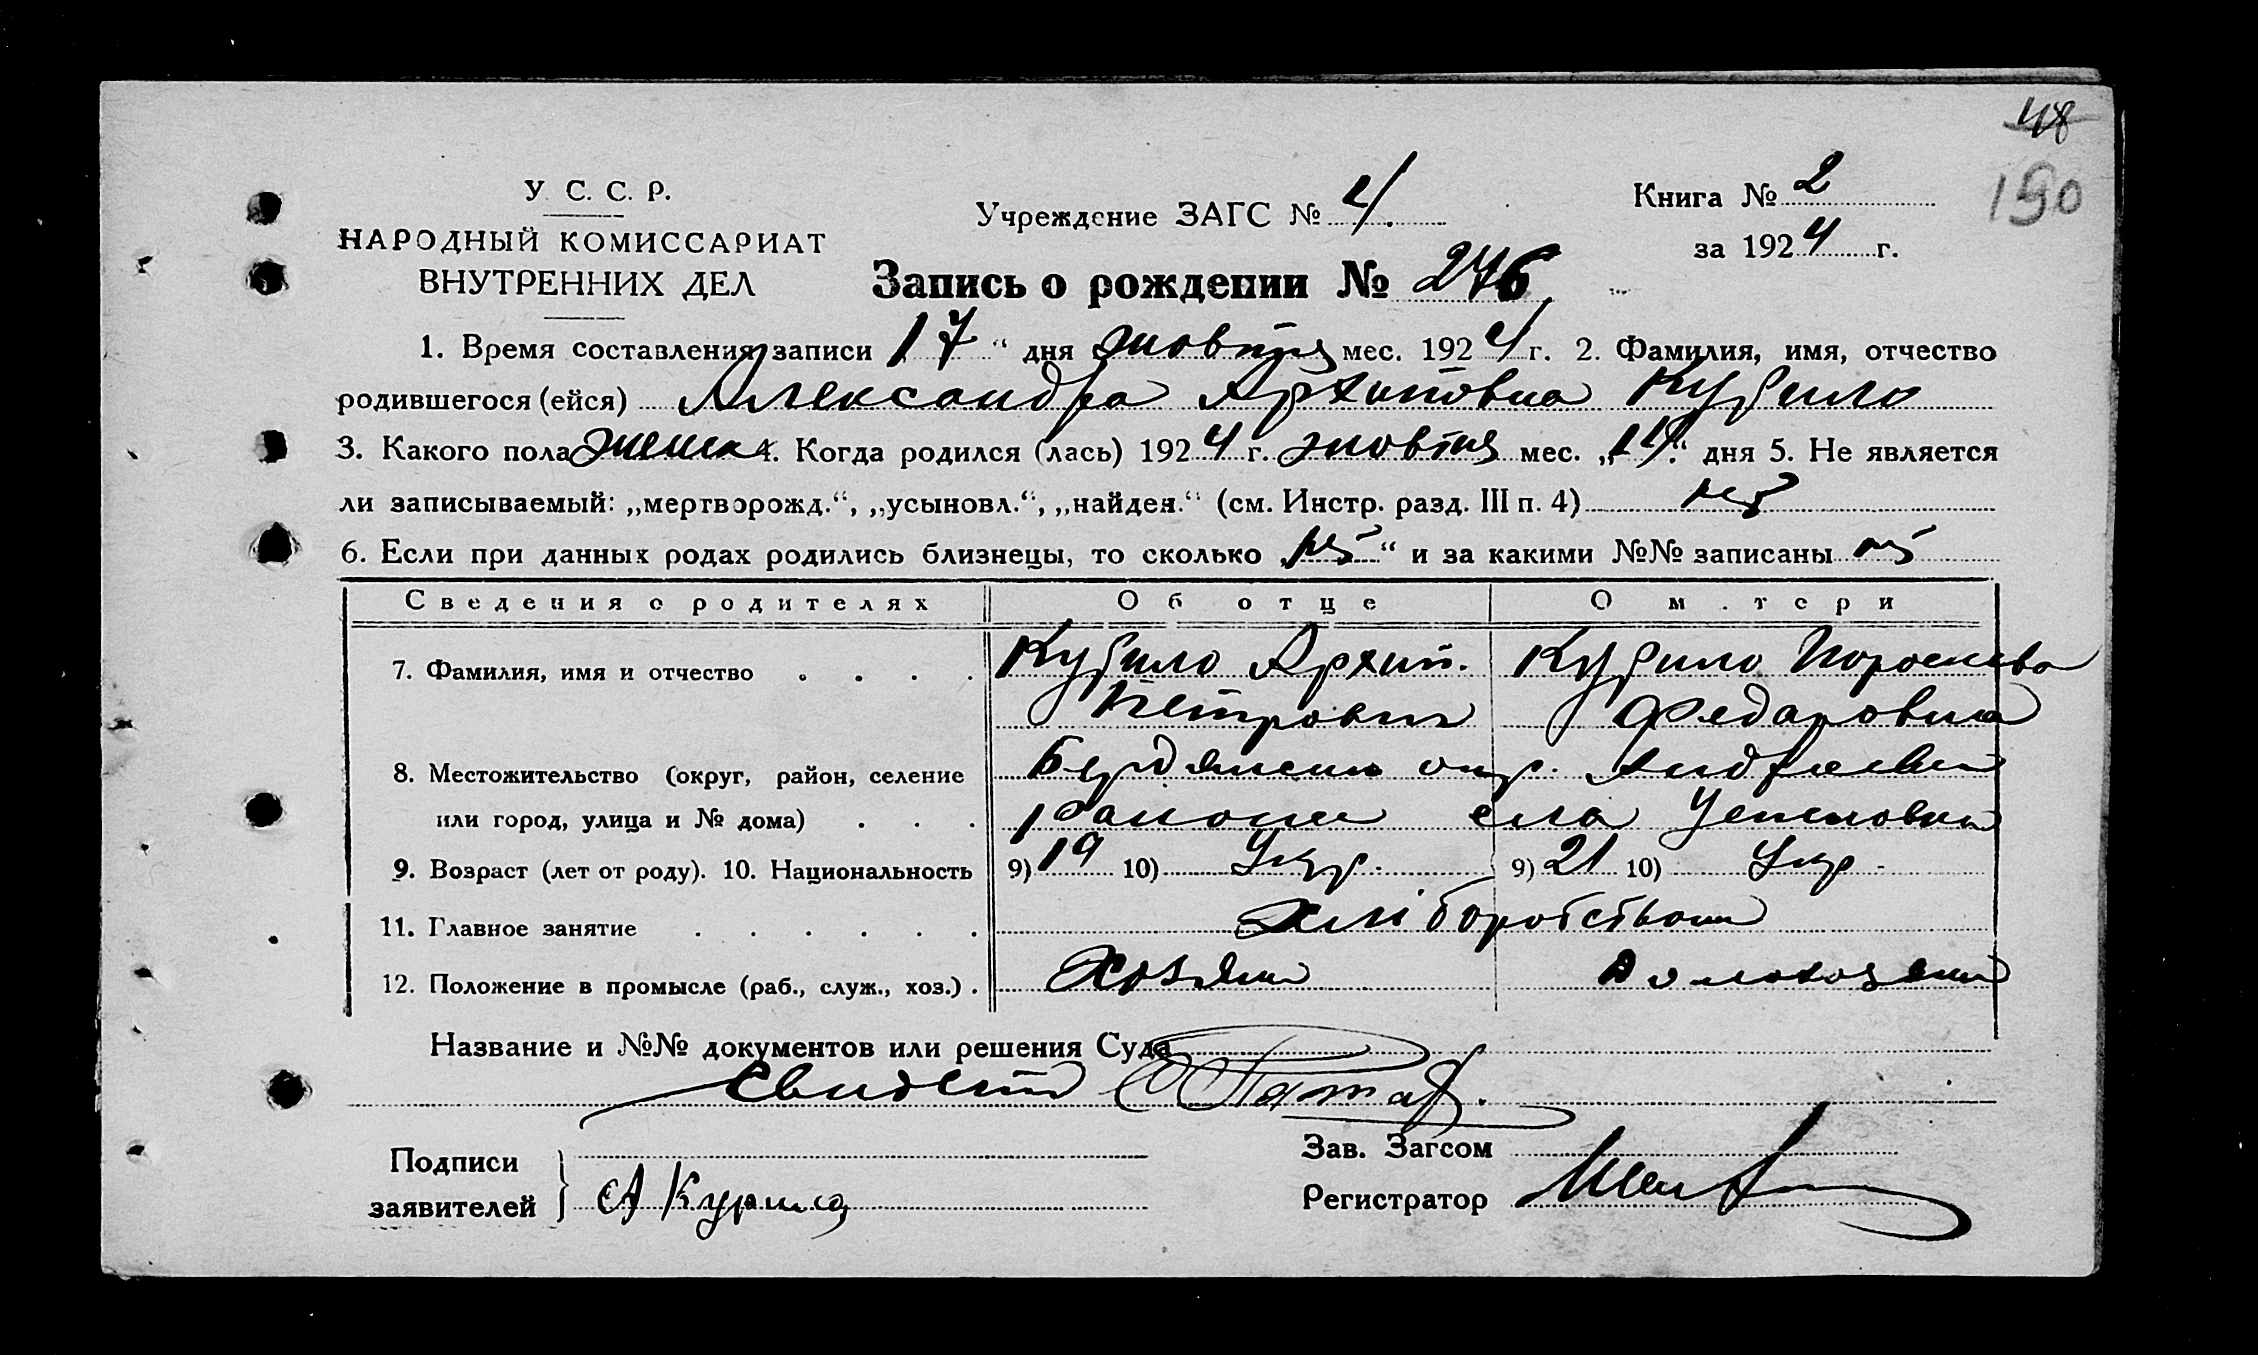 48
190
У. С. С. Р.
НАРОДНЫЙ КОМИССАРИАТ
ВНУТРЕННИХ ДЕЛ
Учреждение ЗАГС № 4.
Книга № 2
за 1924 г.
Запись о рождении № 276
1. Время составления записи 17 “ дня жовтня мес. 1924 г. 2. Фамилия, имя, отчество
родившегося (ейся) Александра Архиповна Курило
3. Какого пола женск 4. Когда родился (лась) 1924 г. жовтня мес. „14“ дня 5. Не является
ли записываемый: „мертворожд.“, „усыновл.“, „найден.“ (см. Инстр. разд. III п. 4) нет
6. Если при данных родах родились близнецы, то сколько „нет“ и за какими №№ записаны нет
Сведения о родителях Об отце О матери
7. Фамилия, имя и отчество . . . . Курило Архип. Курило
Петрович Федоровна
8. Местожительство (округ, район, селение Бердянский окр.
или город, улица и № дома) . . . района села
9. Возраст (лет от роду). 10. Национальность 9) 19 10) Укр. 9) 21 10) Укр.
11. Главное занятие . . . . . . хліборобством
12. Положение в промысле (раб., служ., хоз.) . Хозяин домохозяин
Название и №№ документов или решения Суда
Свидет
Подписи
заявителей } А Курило
Зав. Загсом
Регистратор